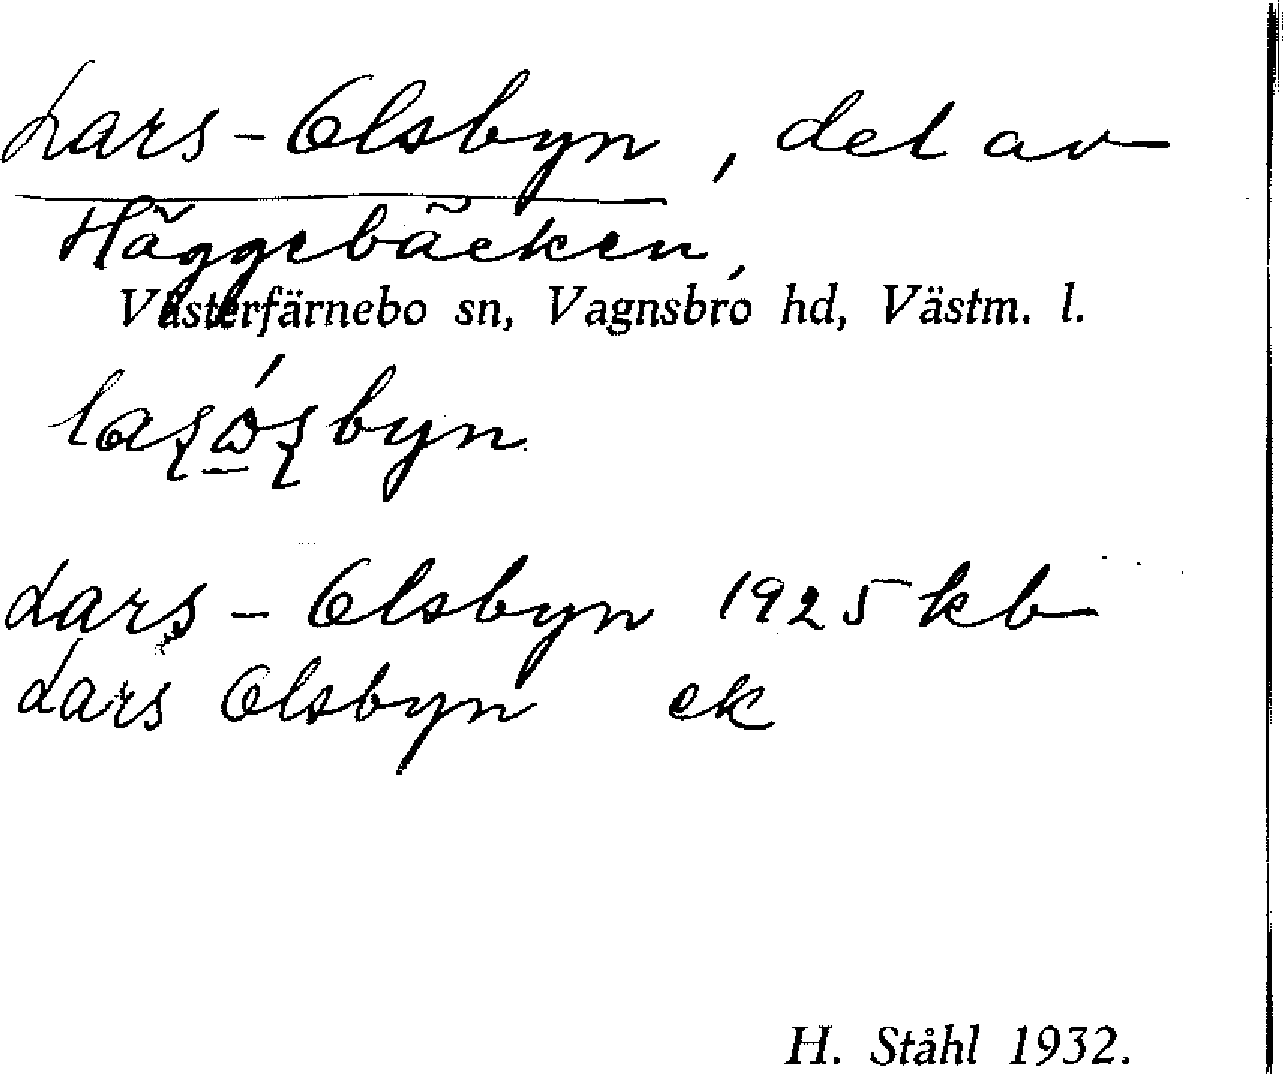 Lars-Olsbyn, del av
Häggebäcken,
Västerfärnebo sn, Vagnsbro hd, Västm. l.
Lars-Olsbyn 1925 kb
Lars Olsbyn ek
H. Ståhl 1932.